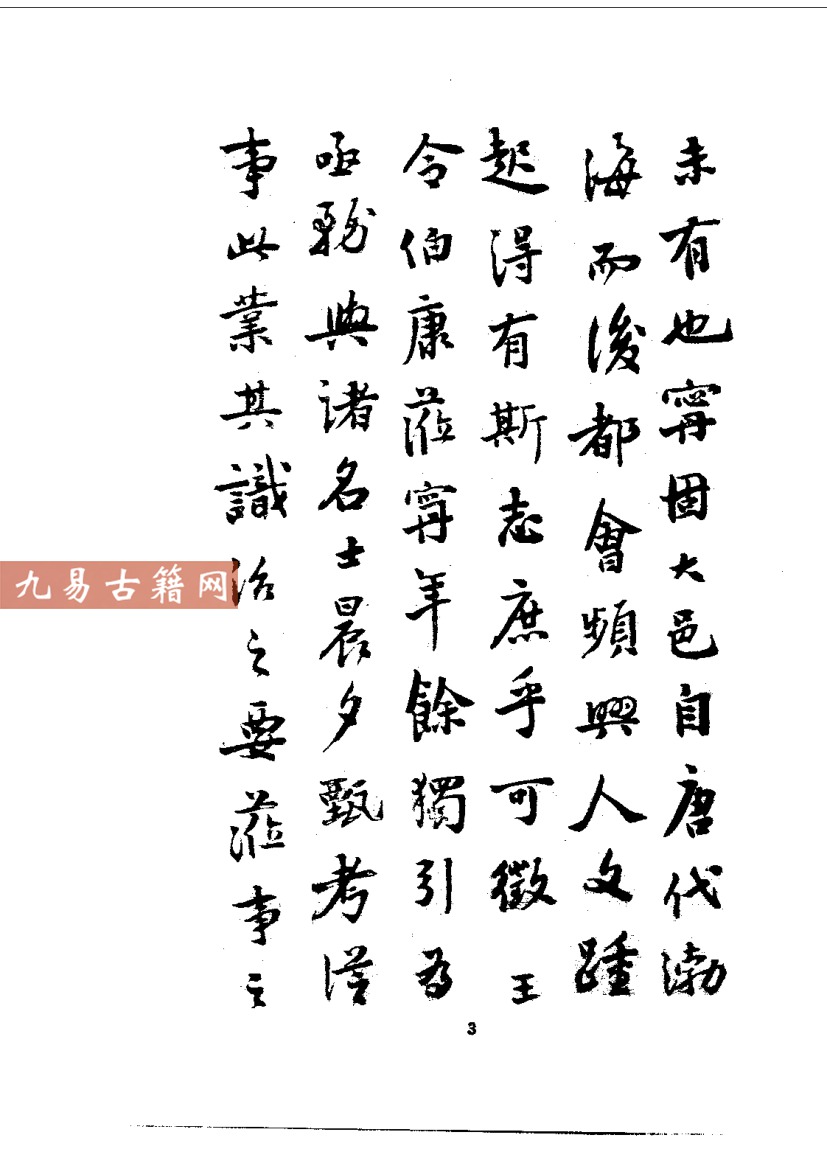 未有也甯固大邑自唐代渤
海而後都會頻興人文踵
起得有斯志庶乎可徵王
令伯康蒞甯年餘獨引為
亟務與諸名士晨夕甄考從
事此業其識治之要蒞事之
九易古籍网
3